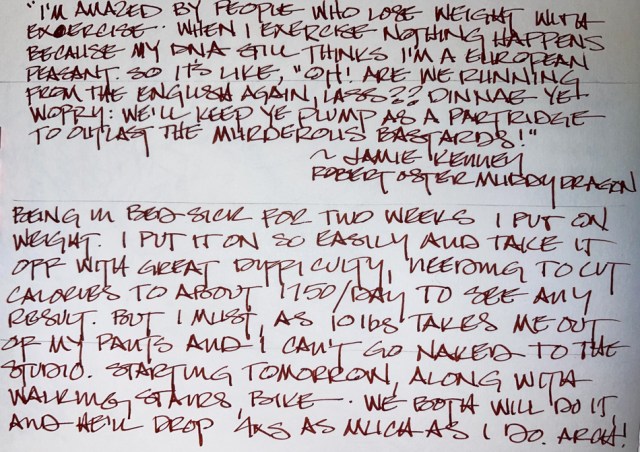 "I'M AMAZED BY PEOPLE WHO LOSE WEIGHT WITH
EXERCISE. WHEN I EXERCISE NOTHING HAPPENS
BECAUSE MY DNA STILL THINKS I'M A EUROPEAN
PEASANT. SO IT'S LIKE, "OH! ARE WE RUNNING
FROM THE ENGLISH AGAIN, LASS?? DINNAE YE
WORRY: WE'LL KEEP YE PLUMP AS A PARTRIDGE
TO OUTLAST THE MURDEROUS BASTARDS!"
~ JAMIE KENNEY
ROBERT OSTER MUDDY DRAGON
BEING IN BED SICK FOR TWO WEEKS I PUT ON
WEIGHT. I PUT IT ON SO EASILY AND TAKE IT
OFF WITH GREAT DIFFICULTY, NEEDING TO CUT
CALORIES TO ABOUT 1150/DAY TO SEE ANY
RESULT. BUT I MUST, AS 10 lbs TAKES ME OUT
OF MY PANTS AND I CAN'T GO NAKED TO THE
STUDIO. STARTING TOMORROW, ALONG WITH
WALKING, STAIRS, BIKE. WE BOTH WILL DO IT,
AND HE'LL DROP 4xs AS MUCH AS I DO. ARGH!